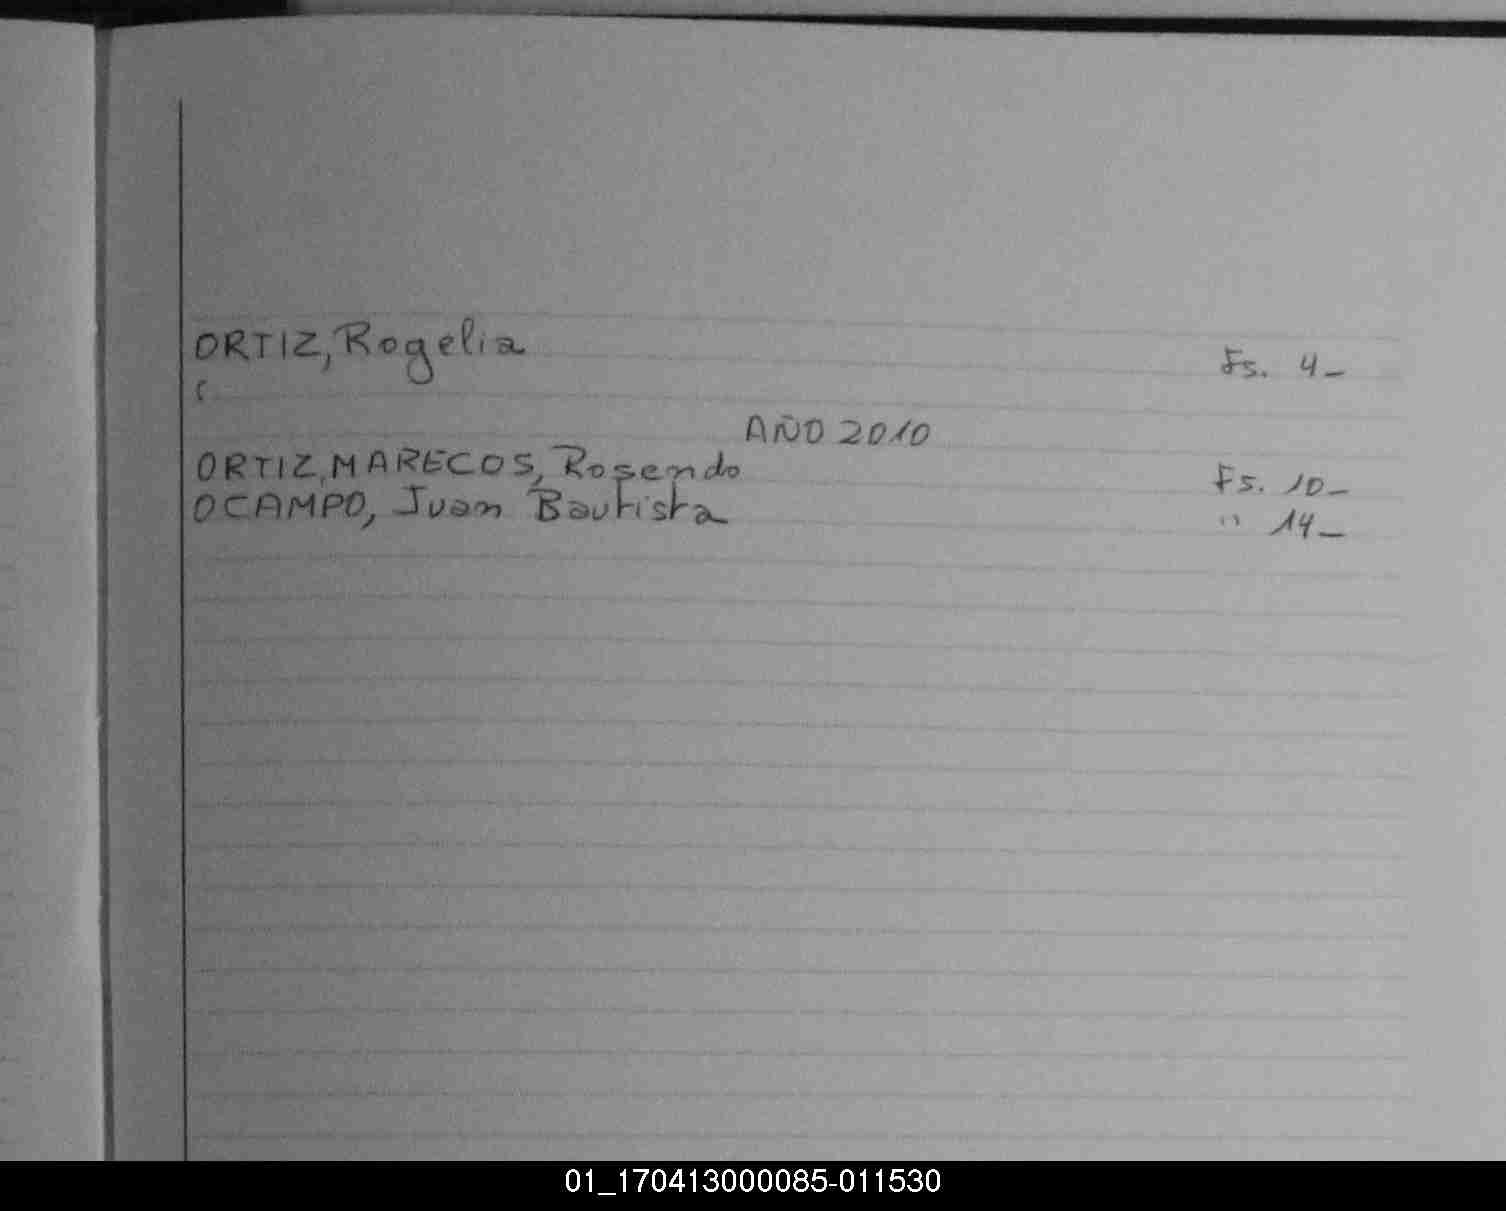 ORTIZ, Rogelia Fs. 4-
AÑO 2010
ORTIZ, MARECOS, Rosendo Fs. 10-
OCAMPO, Juan Bautista " 14-
01_170413000085-011530